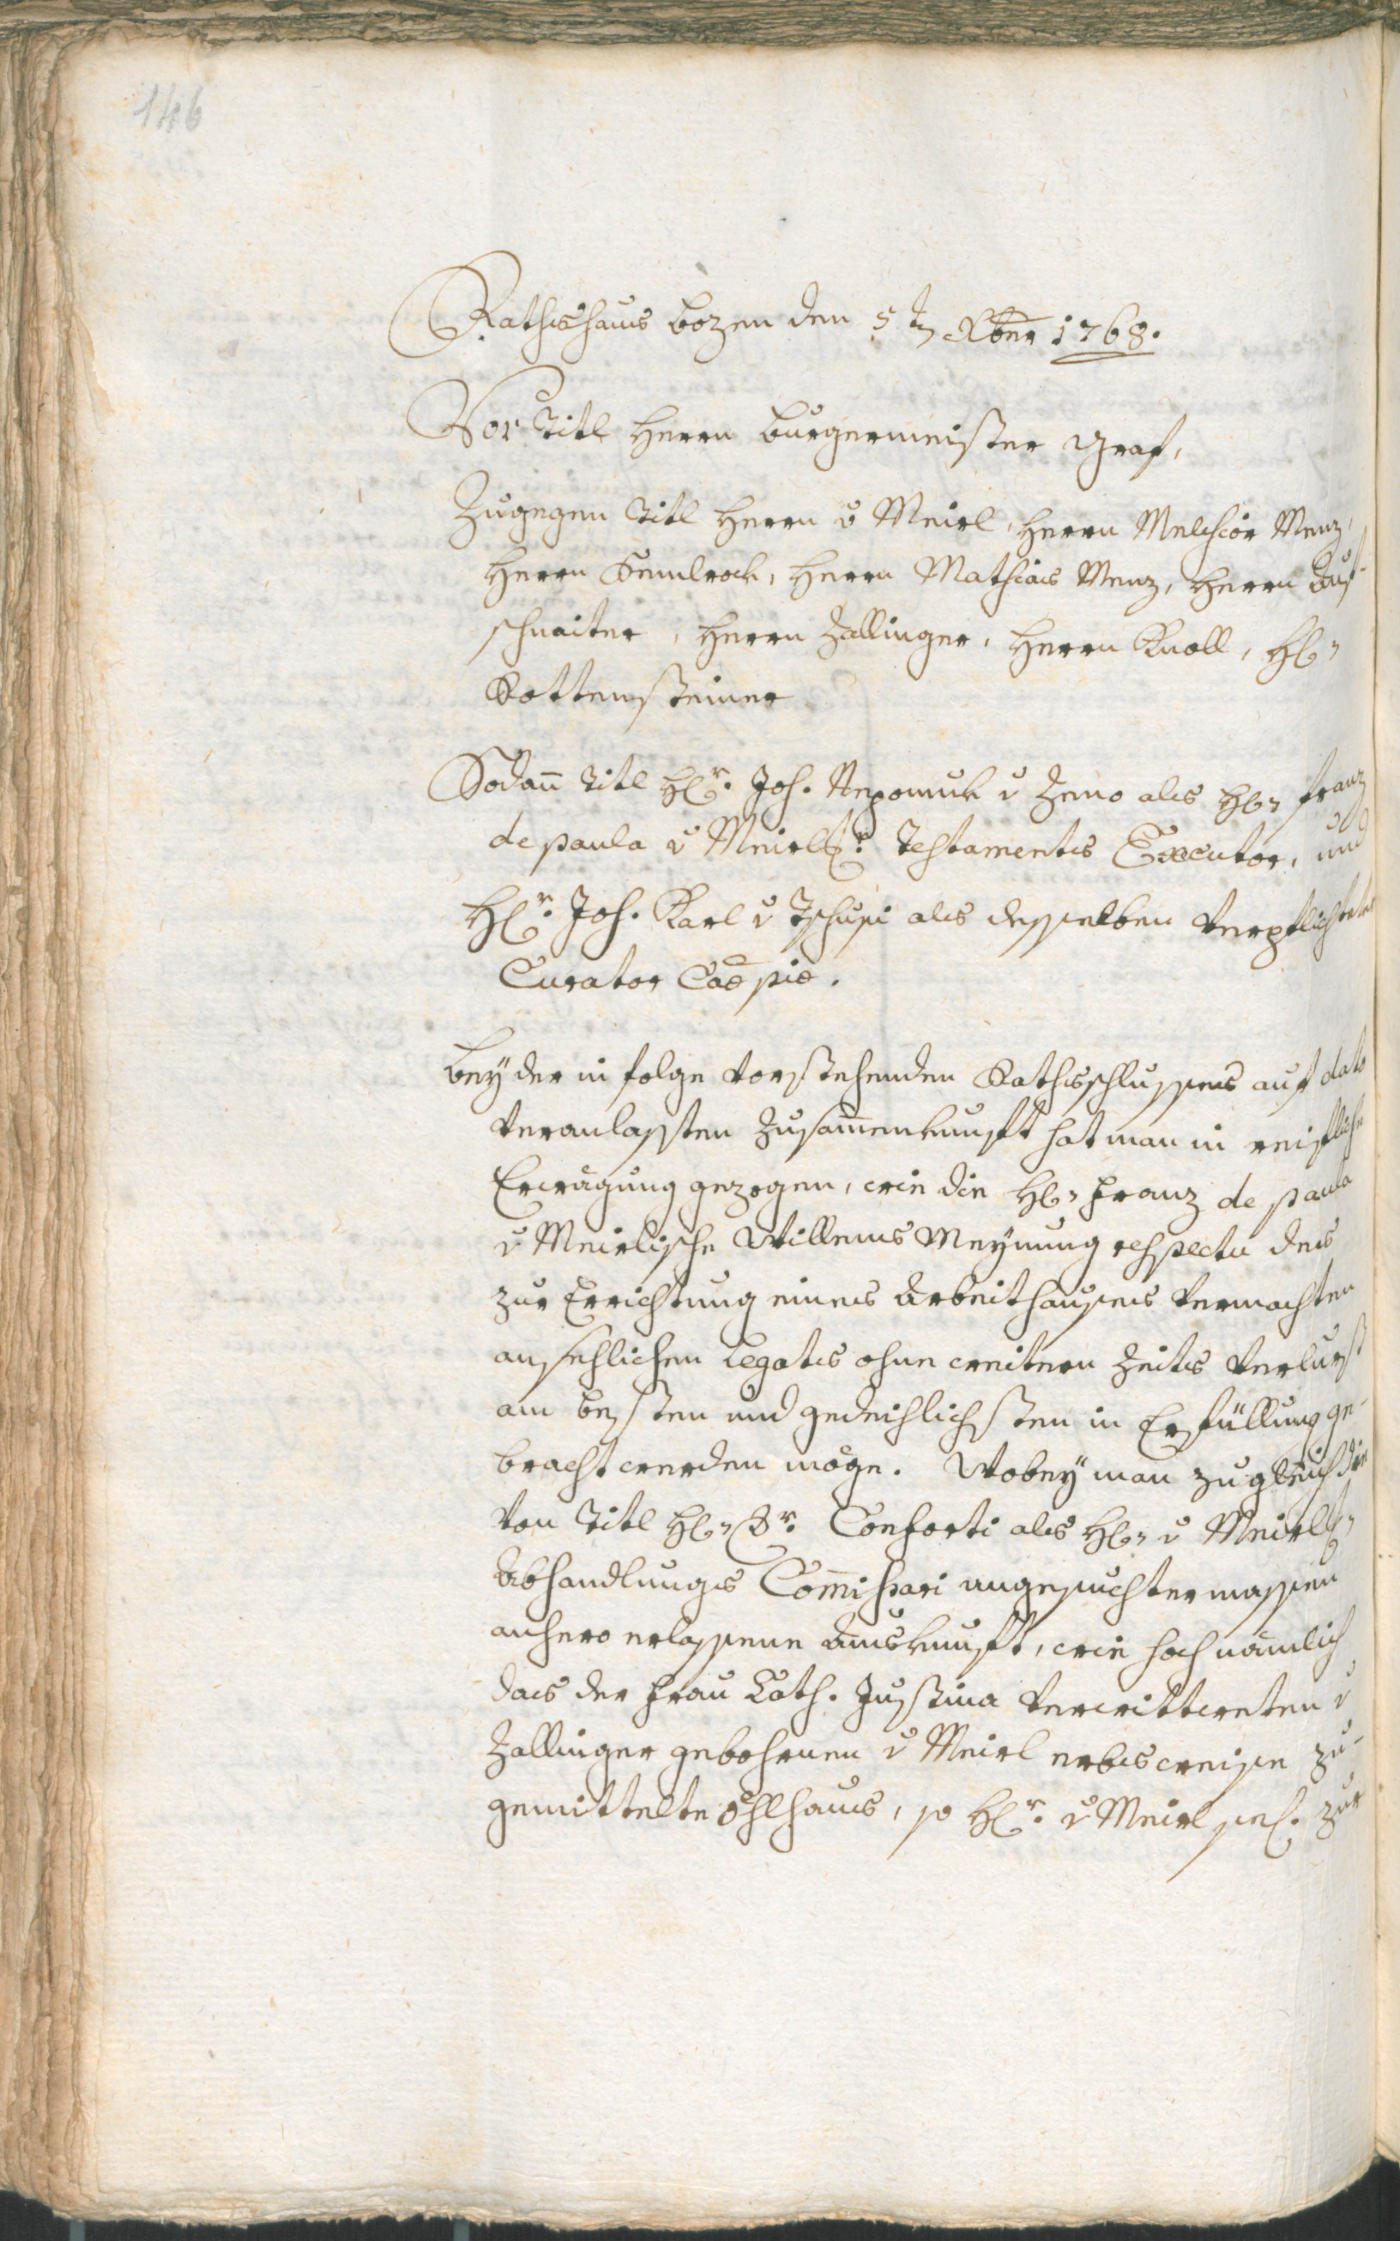 146
Rathshaus Bozen den 5t Xber 1768.
Vor Titl Herrn Burgermeister Graf,
Zugegen Titl Herrn v Meirl, Herrn Melchior Menz,
Herrn Hemlrock, Herrn Mathias Menz, Herrn Auf-
schnaiter, Herrn Zallinger, Herrn Knoll, H
Rottensteiner
Sodañ Titl Hr. Joh. Nepomuk v Zeno als H Franz
de Paula v Meirl Testaments Executor, und
Hr. Joh. Karl v Tschusi als desselben Verpflichteter
Curator Cae piae.
Bey der in Folge vorstehenden Rathsschlusses auf dato
veranlassten Zusam̄enkunft hat man in reifliche
Erwägung gezogen, wie die H Franz de Paula
v Meirlische Willens Meynung respectu des
zur Errichtung eines Arbeithauses vermachten
ansehlichen Legats ohne weitern Zeits Verlurst
am besten und gedeihlichsten in Erfüllung ge-
bracht werden möge. Wobey man zugleich die
von Titl H Dr. Conforti als H v Meirl
Abhandlungs Com̄issari angesuchtermassen
anhero erlassene Auskunft, wie hoch nämlich
das der Frau Cath. Justina verwittweten v
Zallinger gebohrnen v Meirl erbsweise zu-
gemittelte Öhlhaus, so Hr. v Meirl sel. zur